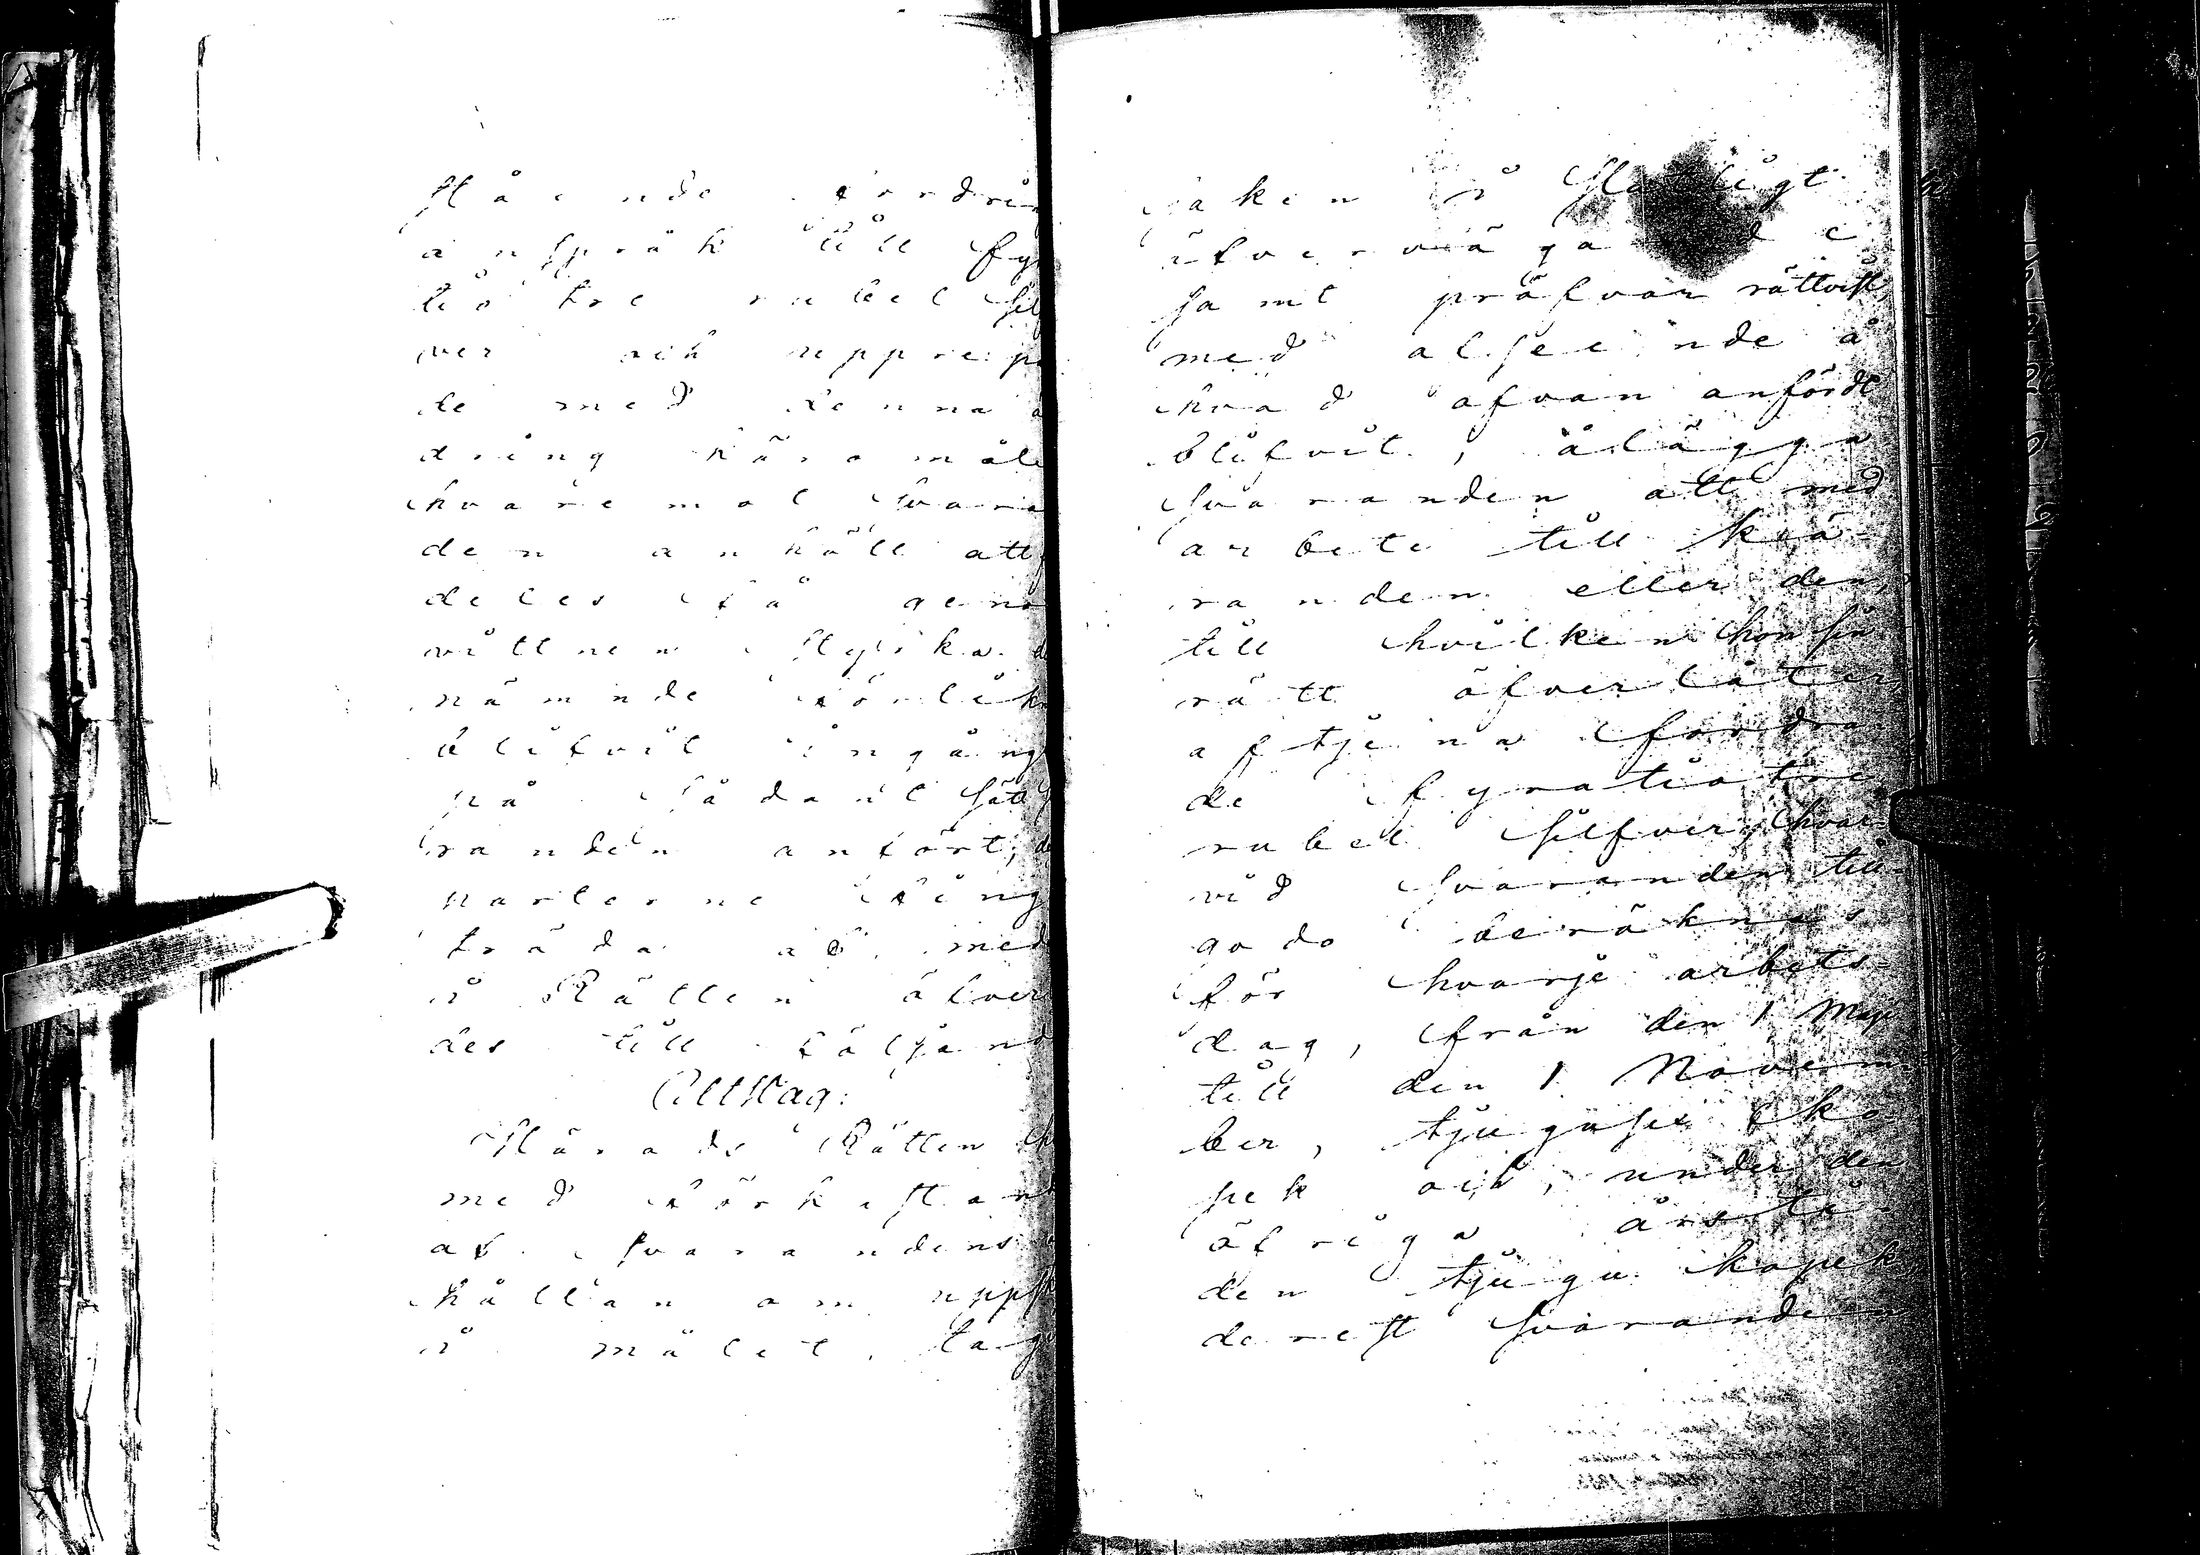 stående fordrin
anspråk till fy
tio tre rubel sil
ver och upprepa
de med denna ä
dring käromåle
hvaremot Svara
den anhöll att
deles få geno
vittnen styrka d
nämnde förlik
blifvit ingång
på sådant sätt
randen anfört, de
parterne fing
träda af, med
i Rätten öfver
des till följand
Utslag:
Härads Rätten
med förkastan
af Svarandens
hållan om uppsk
i målet, tag
saken i
öfvervägande
samt pröfvar rättvist,
med afseende å
hvad ofvan anfördt
blifvit, ålägga
Svaranden att med
arbete till Kä-
randen eller den,
till hvilken hon sin
rätt öfverlåter,
aftjena fordra
de fyratiotre
rubel silfver, hvar-
vid Svaranden till-
godo beräknas
för hvarje arbets-
dag, från den 1 Maji
till den 1 Novem-
ber, tjugusex ko-
pek och, under den
öfriga årsti-
den tjugu kopek
derest Svaranden